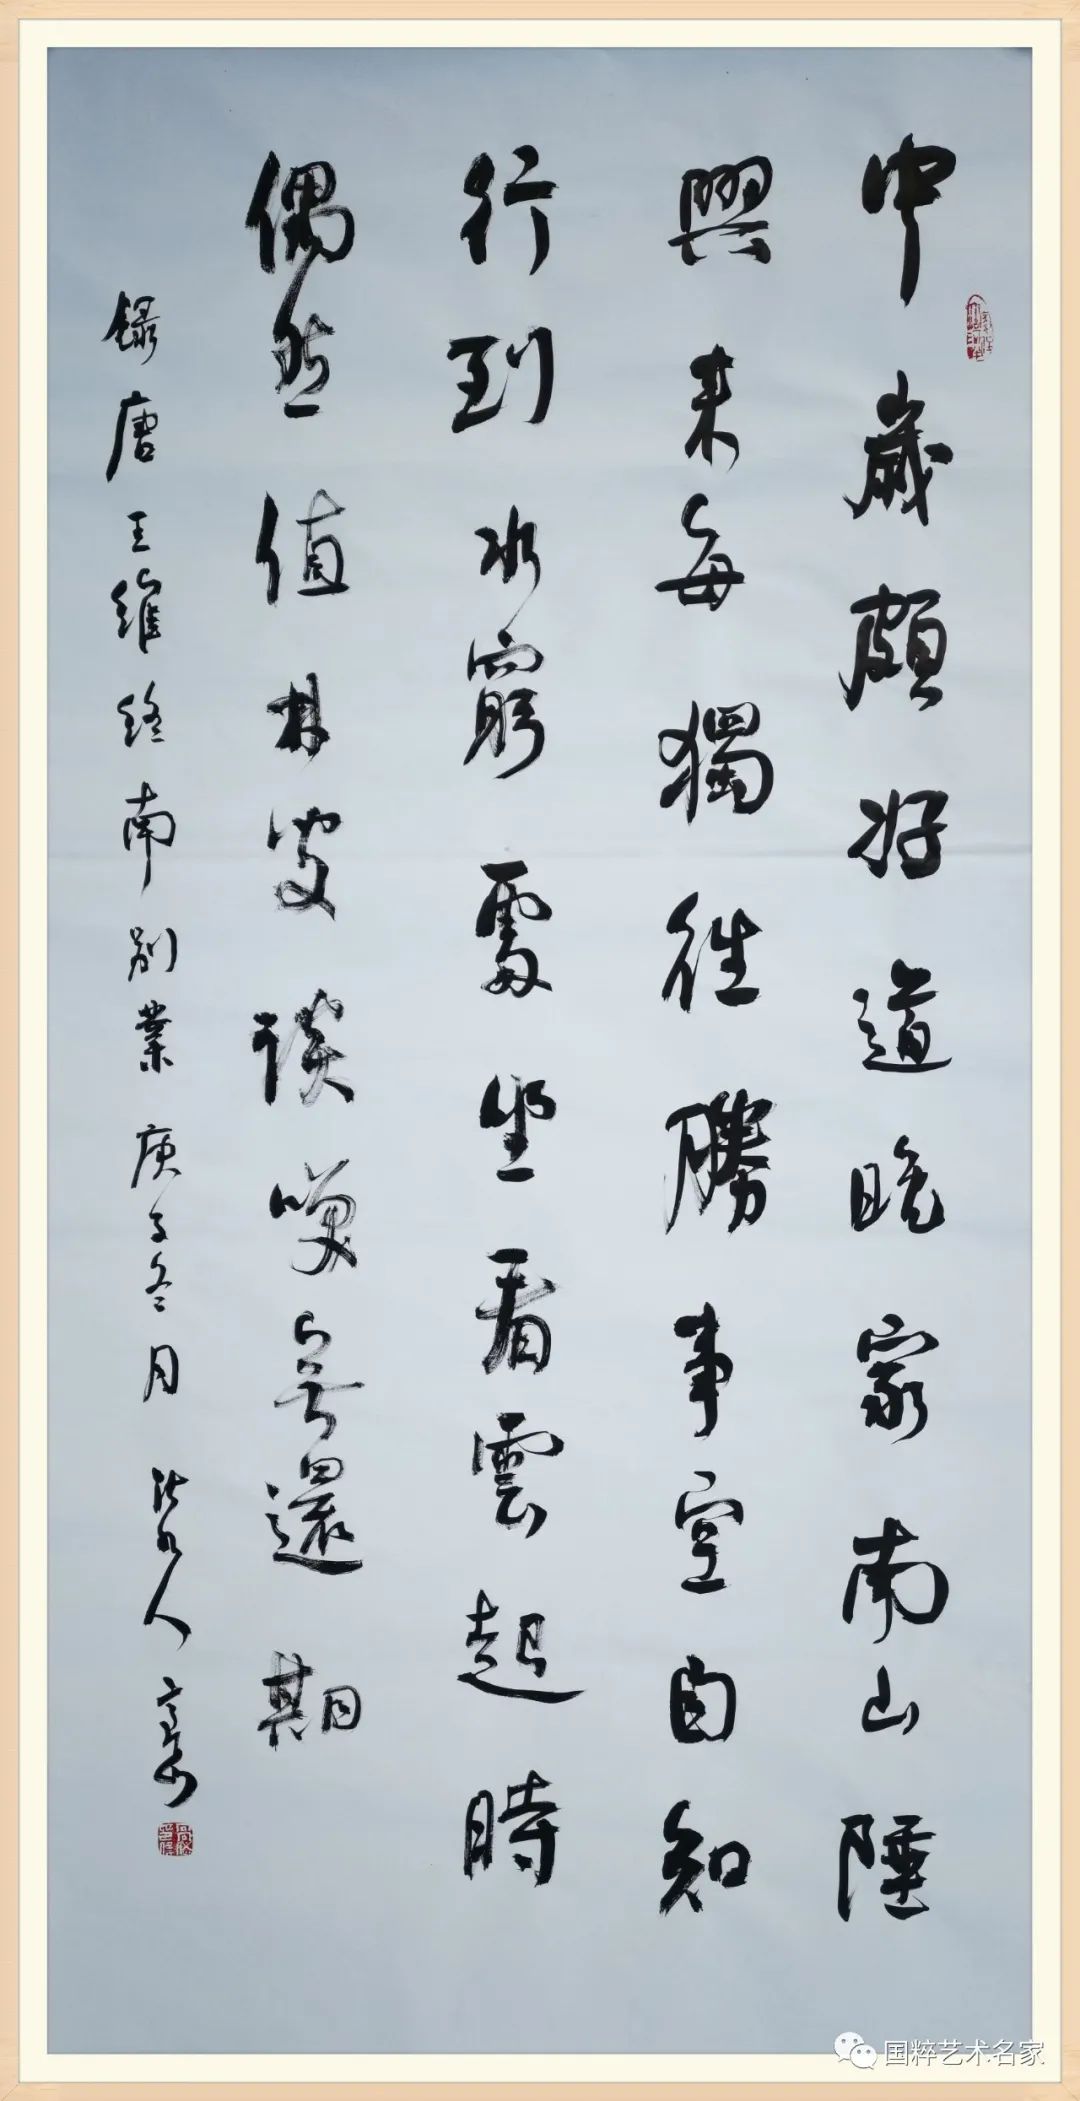 中歲頗好道晚家南山陲
興來每獨往勝事空自知
行到水窮處坐看雲起時
偶然值林叟談笑無還期
錄唐王維終南別業庚子冬月
国粹艺术名家